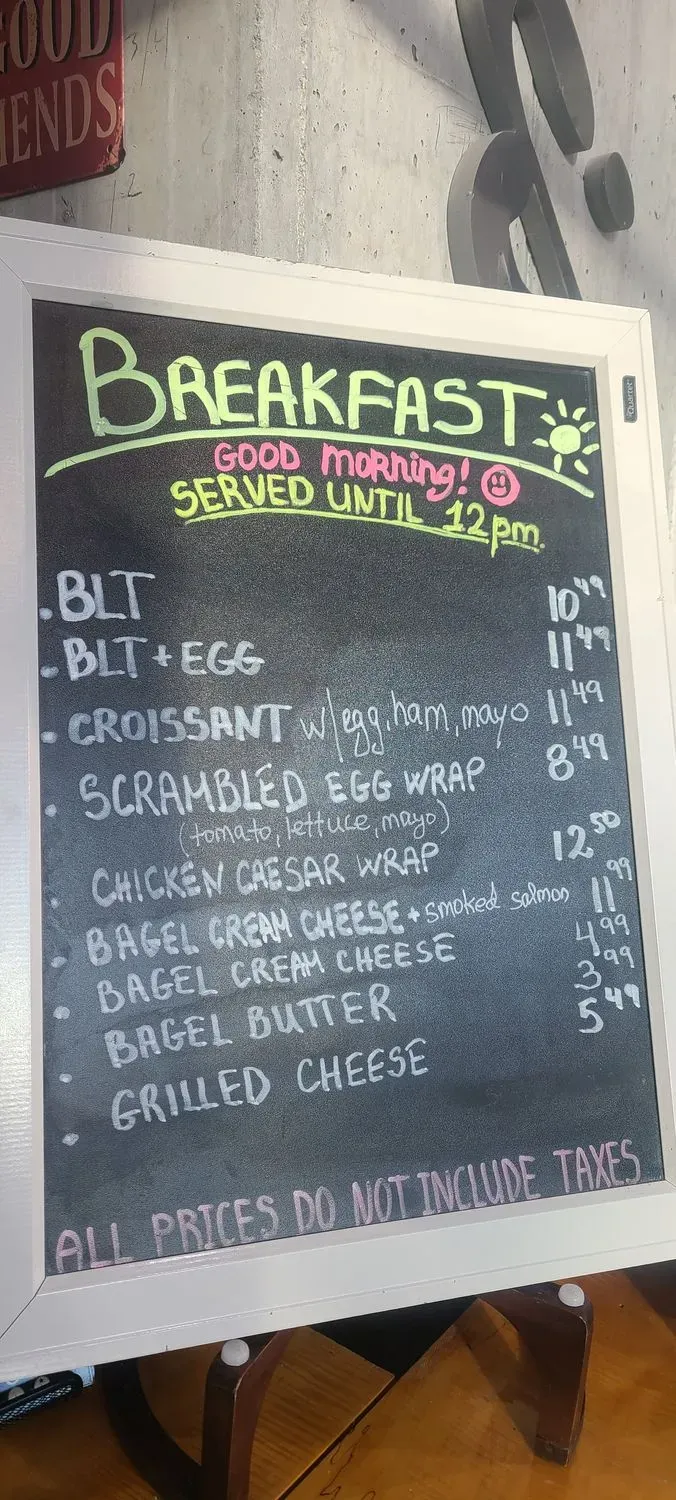 GOOD
IENDS
Quartet
BREAKFAST
GOOD morning!
SERVED UNTIL 12pm.
. BLT 10 49
. BLT + EGG 11 49
. CROISSANT w/egg, ham, mayo 11 49
. SCRAMBLED EGG WRAP 8 49
(tomato, lettuce, mayo)
. CHICKEN CAESAR WRAP 12 50
. BAGEL CREAM CHEESE + smoked salmon 11 99
. BAGEL CREAM CHEESE 4 99
. BAGEL BUTTER 3 99
. GRILLED CHEESE 5 49
ALL PRICES DO NOT INCLUDE TAXES